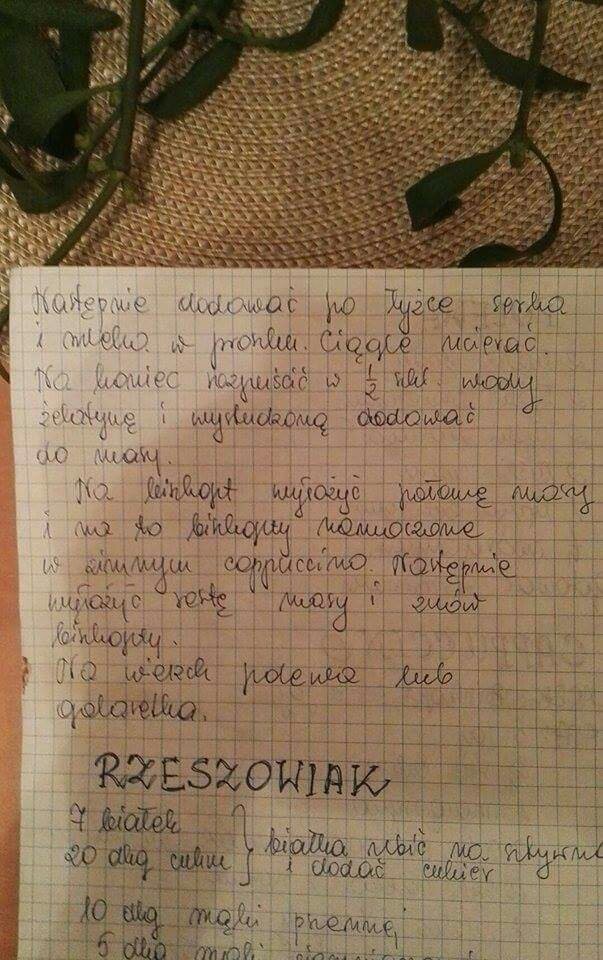 Następnie dodawać po łyżce serka
i mleka w proszku. Ciągle ucierać.
Na koniec rozpuścić w 1/2 szkl. wody
żelatynę i wystudzoną dodawać
do masy.
Na biszkopt wyłożyć połowę masy
i na to biszkopty namoczone
w zimnym cappuccino. Następnie
wyłożyć resztę masy i znów
biszkopty.
Na wierzch polewa lub
galaretka.
RZESZOWIAK
7 białek
20 dkg cukru } białka ubić na sztywno
i dodać cukier
10 dkg mąki pszennej
5 dkg mąki